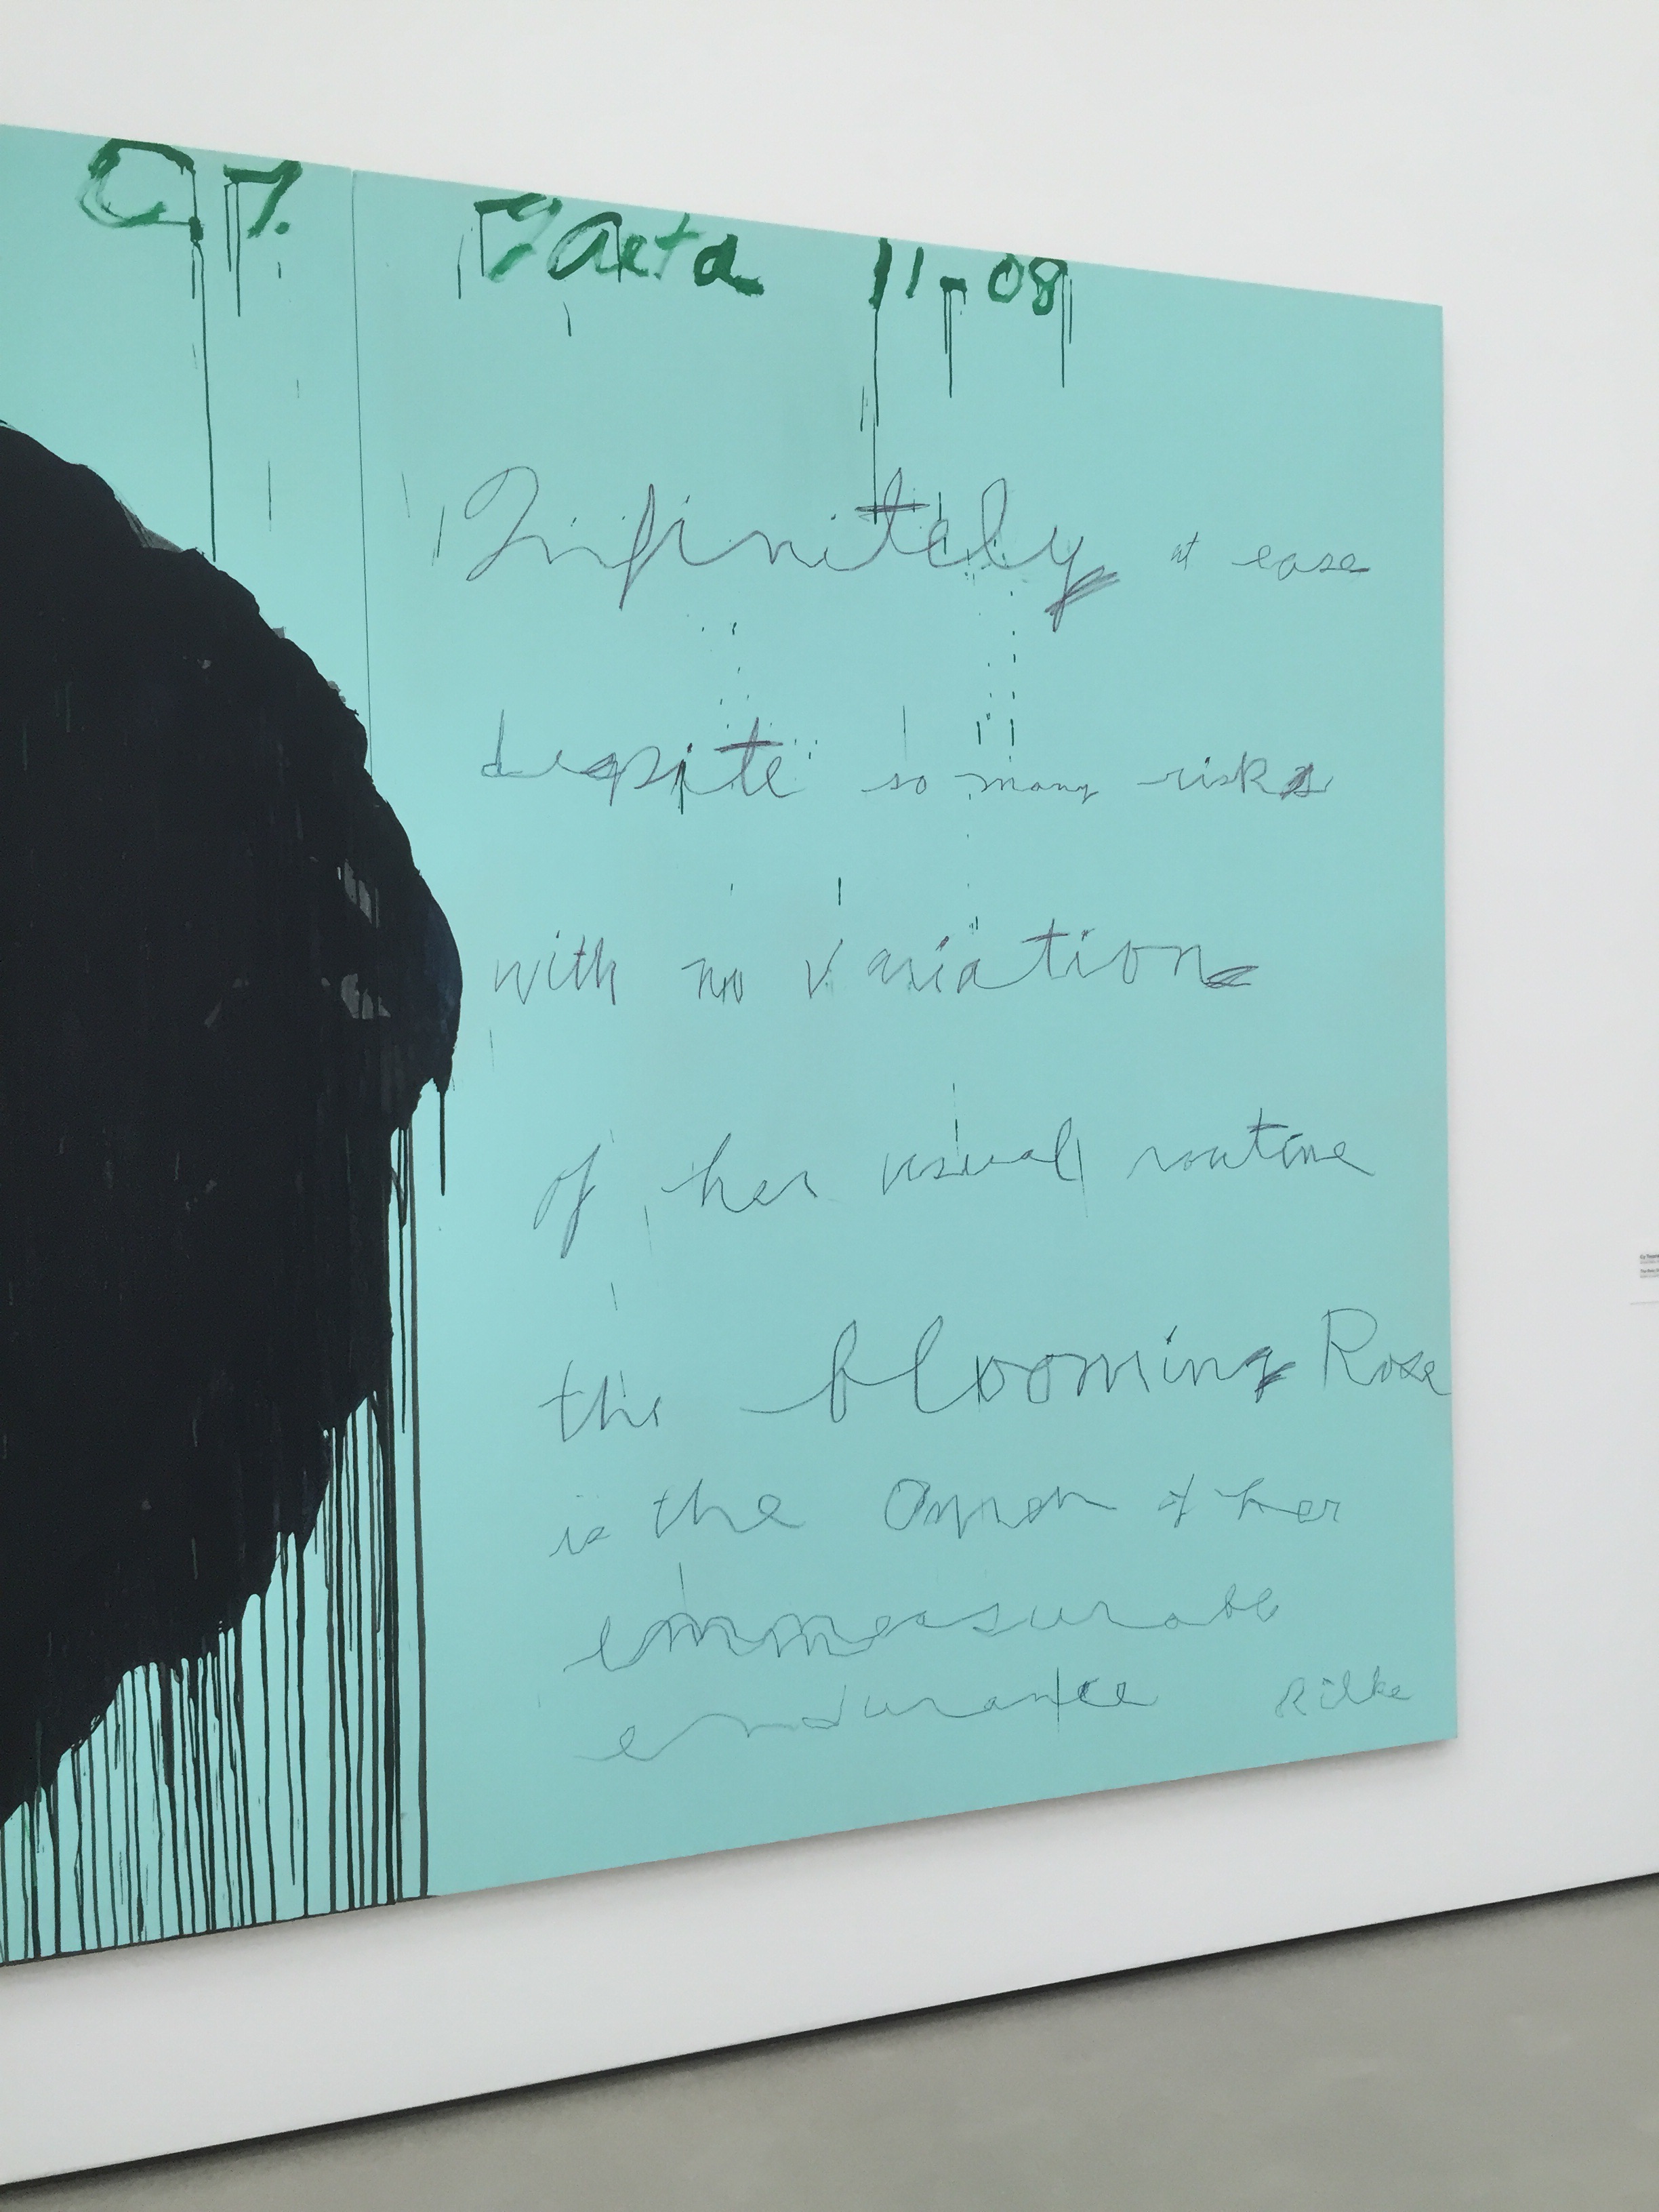 C.T. Gaeta 11-08
Infinitely at ease
despite so many risks
with no variation
of her usual routine
the blooming Rose
is the Omen of her
immeasurabe
endurance Rilke